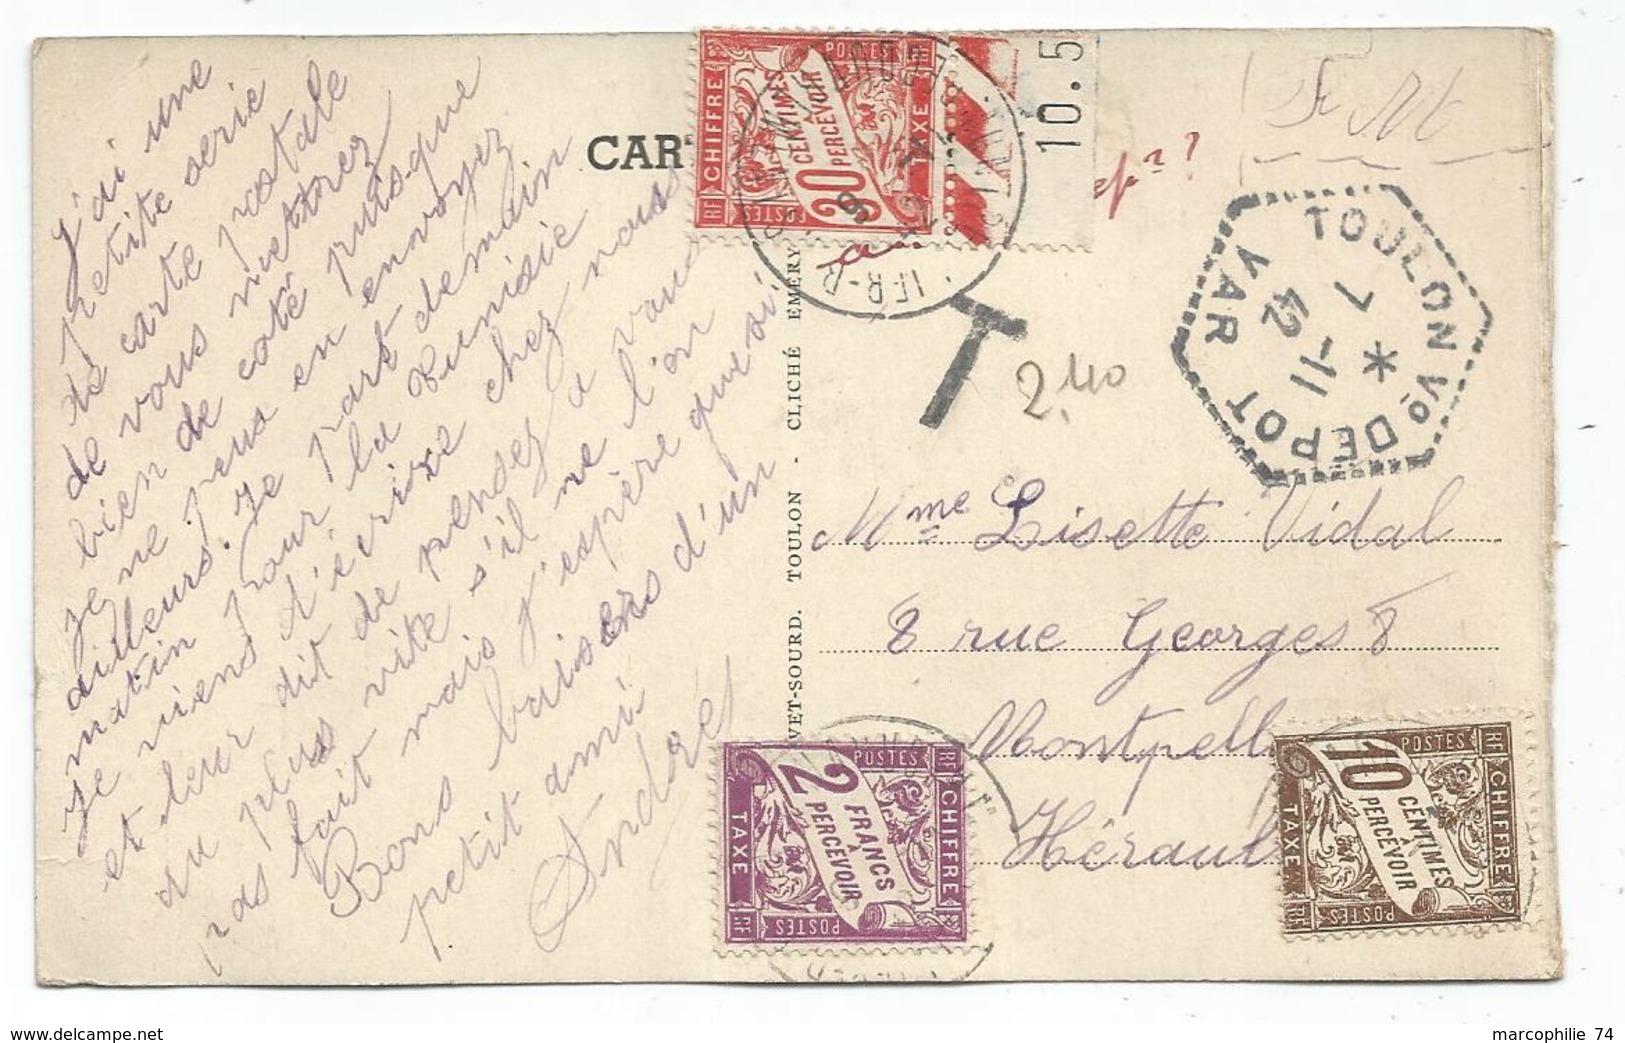 J'ai une
petite serie
de carte postale
de vous mettrez
bien de coté puisque
je ne peus en envoyez
ailleurs. Je part demain
matin pour la Tunisie
je viens d'écrire chez nous
et leur dit de pensez a vous
au plus vite s'il ne l'on
pas fait mais j'espère que si
Bons baisers d'un
petit ami
André
CAR
10.5
F M
T
2,40
TOULON Vº DEPOT
7 -11
42
VAR
CHIFFRE TAXE
POSTES
30 CENTIMES À PERCEVOIR
RF
POSTES
Mme Lisette Vidal
8 rue Georges 8
Montpell
Hérault
VET-SOURD. TOULON - CLICHÉ EMERY
CHIFFRE TAXE
POSTES
2 FRANCS À PERCEVOIR
RF
POSTES
CHIFFRE TAXE
POSTES
10 CENTIMES À PERCEVOIR
RF
POSTES
www.delcampe.net
marcophilie 74